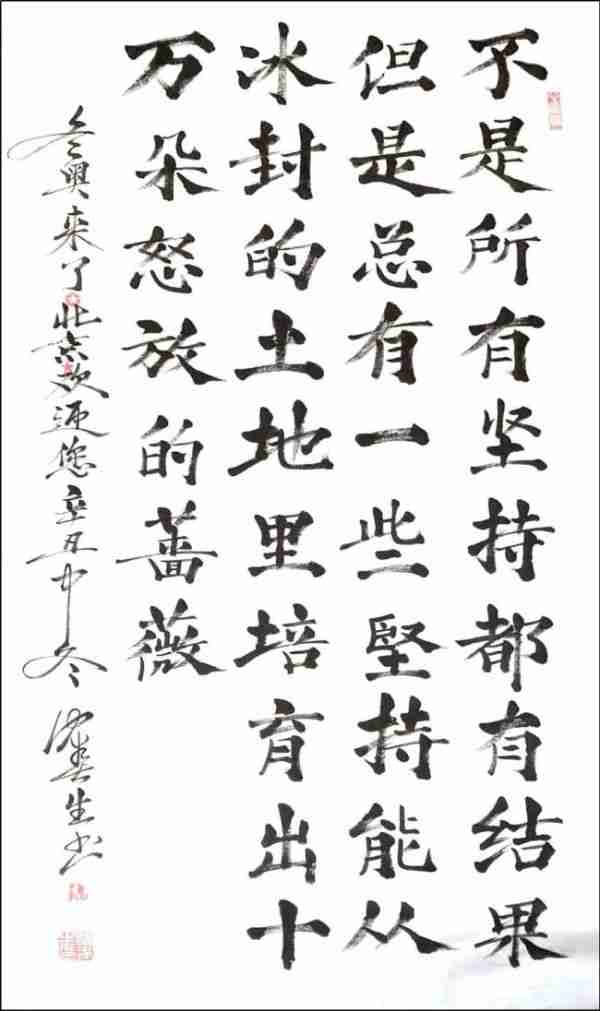 不是所有坚持都有结果
但是总有一些堅持能从
冰封的土地里培育出十
万朵怒放的蔷薇
冬奥来了北京欢迎您辛丑中冬 沈生书